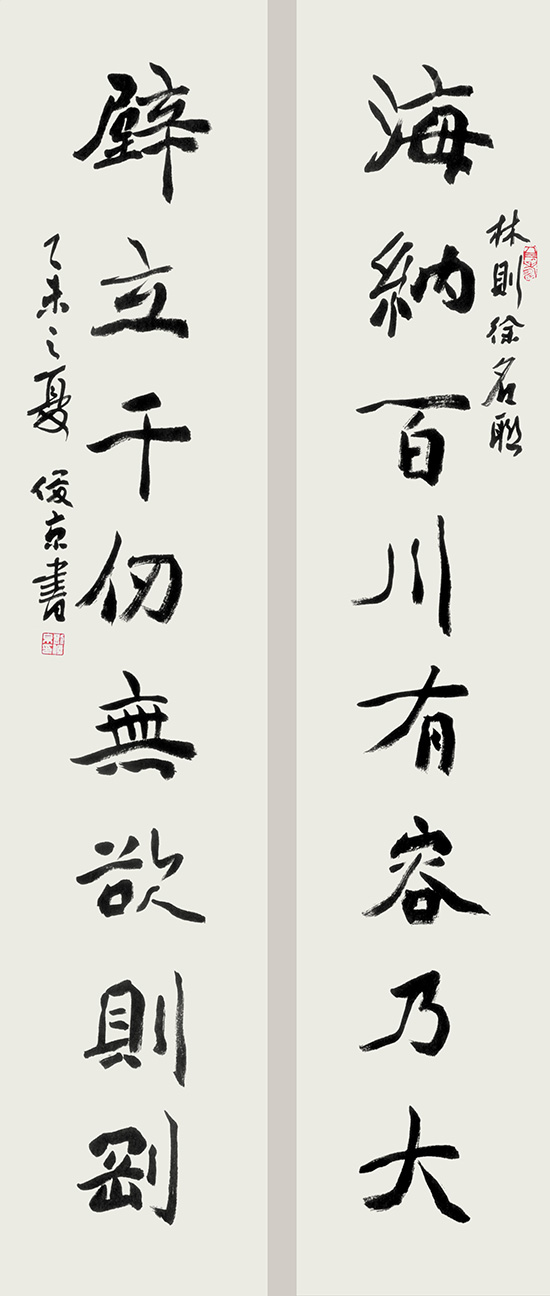 海納百川有容乃大
林則徐名聯
壁立千仞無欲則剛
乙未之夏 俊京書